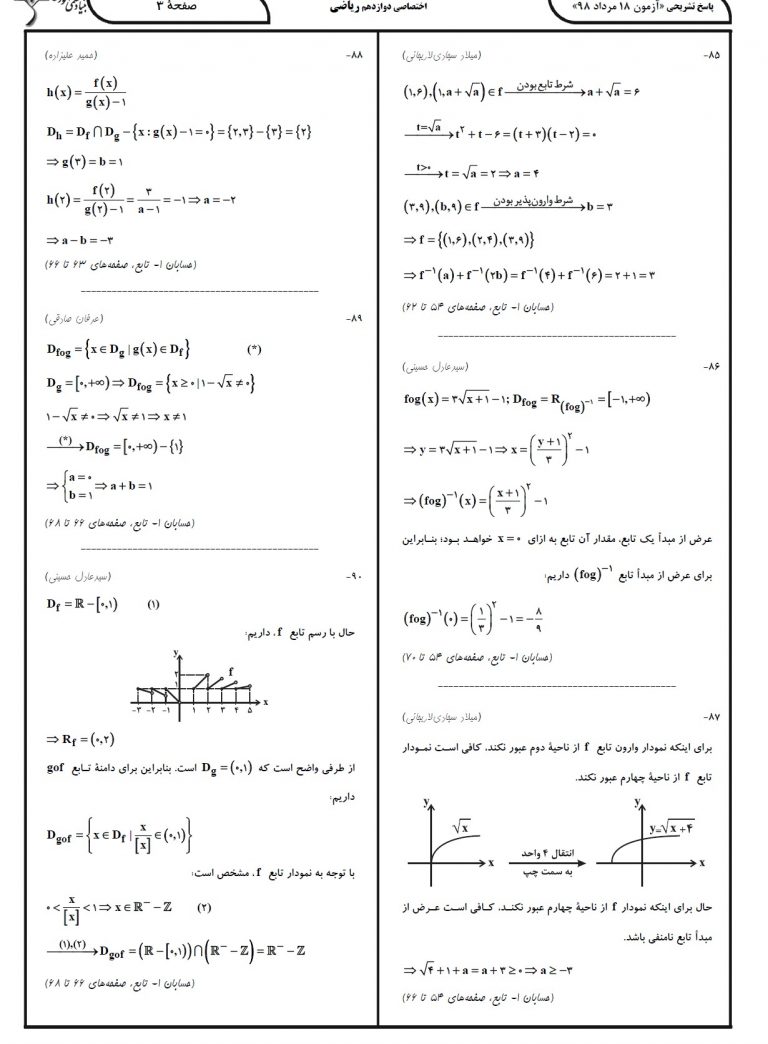 پاسخ تشریحی «آزمون ۱۸ مرداد ۹۸»
اختصاصی دوازدهم ریاضی
صفحهٔ ۳
۸۵-
(میلاد سجادی لاریجانی)
(۱,۶),(۱,a+√a)∈f شرط تابع بودن→ a+√a=۶
t=√a→ t²+t-۶=(t+۳)(t-۲)=۰
t>۰→ t=√a=۲⇒a=۴
(۳,۹),(b,۹)∈f شرط وارون‌پذیر بودن→ b=۳
⇒f={(۱,۶),(۲,۴),(۳,۹)}
⇒f⁻¹(a)+f⁻¹(۲b)=f⁻¹(۴)+f⁻¹(۶)=۲+۱=۳
(حسابان ۱- تابع، صفحه‌های ۵۴ تا ۶۲)
۸۶-
(سیدعادل حسینی)
fog(x)=۳√(x+۱)-۱; D_fog=R_(fog)⁻¹=[-۱,+∞)
⇒y=۳√(x+۱)-۱⇒x=((y+۱)/۳)²-۱
⇒(fog)⁻¹(x)=((x+۱)/۳)²-۱
عرض از مبدأ یک تابع، مقدار آن تابع به ازای x=۰ خواهد بود؛ بنابراین
برای عرض از مبدأ تابع (fog)⁻¹ داریم:
(fog)⁻¹(۰)=(۱/۳)²-۱=-۸/۹
(حسابان ۱- تابع، صفحه‌های ۵۴ تا ۷۰)
۸۷-
(میلاد سجادی لاریجانی)
برای اینکه نمودار وارون تابع f از ناحیهٔ دوم عبور نکند، کافی است نمودار
تابع f از ناحیهٔ چهارم عبور نکند.
y
√x
x
انتقال ۴ واحد
به سمت چپ
y
y=√(x+۴)
x
حال برای اینکه نمودار f از ناحیهٔ چهارم عبور نکند، کافی است عرض از
مبدأ تابع نامنفی باشد.
⇒√۴+۱+a=a+۳≥۰⇒a≥-۳
(حسابان ۱- تابع، صفحه‌های ۵۴ تا ۶۶)
۸۸-
(حمید علیزاده)
h(x)=f(x)/(g(x)-۱)
D_h=D_f∩D_g-{x:g(x)-۱=۰}={۲,۳}-{۳}={۲}
⇒g(۳)=b=۱
h(۲)=f(۲)/(g(۲)-۱)=۳/(a-۱)=-۱⇒a=-۲
⇒a-b=-۳
(حسابان ۱- تابع، صفحه‌های ۶۳ تا ۶۶)
۸۹-
(عرفان صادقی)
D_fog={x∈D_g|g(x)∈D_f} (*)
D_g=[۰,+∞)⇒D_fog={x≥۰|۱-√x≠۰}
۱-√x≠۰⇒√x≠۱⇒x≠۱
(*)→ D_fog=[۰,+∞)-{۱}
⇒{a=۰, b=۱ ⇒a+b=۱
(حسابان ۱- تابع، صفحه‌های ۶۶ تا ۶۸)
۹۰-
(سیدعادل حسینی)
D_f=ℝ-[۰,۱) (۱)
حال با رسم تابع f، داریم:
y
۲
۱
f
-۳ -۲ -۱ ۱ ۲ ۳ ۴ ۵ x
⇒R_f=(۰,۲)
از طرفی واضح است که D_g=(۰,۱) است. بنابراین برای دامنهٔ تابع gof
داریم:
D_gof={x∈D_f|x/[x]∈(۰,۱)}
با توجه به نمودار تابع f، مشخص است:
۰<x/[x]<۱⇒x∈ℝ⁻-ℤ (۲)
(۱),(۲)→ D_gof=(ℝ-[۰,۱))∩(ℝ⁻-ℤ)=ℝ⁻-ℤ
(حسابان ۱- تابع، صفحه‌های ۶۶ تا ۶۸)